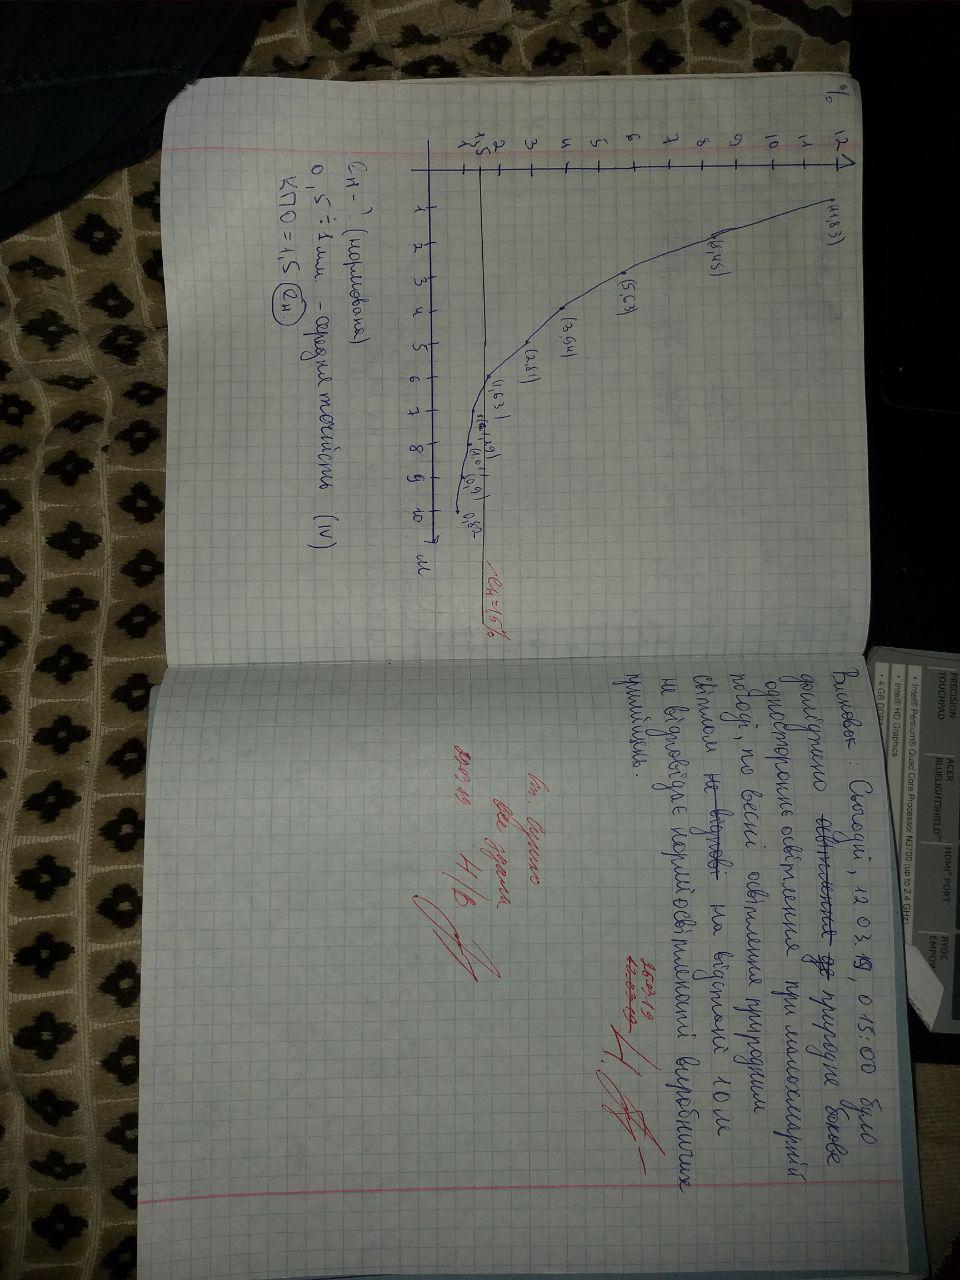 PRECISION TOUCHPAD
ACER BLUELIGHTSHIELD™
HDMI® PORT
BYOC
EMPOW
• Intel® Pentium® Quad Core Processor N3700 (up to 2.4 GHz)
• Intel® HD Graphics
• 4 GB DDR
%
12
11
10
9
8
7
6
5
4
3
2
1,5
1
(11,83)
(8,45)
(5,63)
(3,94)
(2,81)
(1,63)
(1,29)
(1,01)
(0,9)
0,82
ен=1,5%
1 2 3 4 5 6 7 8 9 10 м
ен - ? (нормована)
0,5 ÷ 1 мм. - середня точність (IV)
КПО = 1,5 ен.
Висновок: Сьогодні, 12.03.19, о 15:00 було
досліджено освітлення природне бокове
одностороннє освітлення при малохмарній
погоді, по весні освітлення природним
світлом не відпові на відстані 10 м
не відповідає нормі освітленості виробничих
приміщень.
26.03.19
12.03.19
4.
все здала
29.03.19 4/В